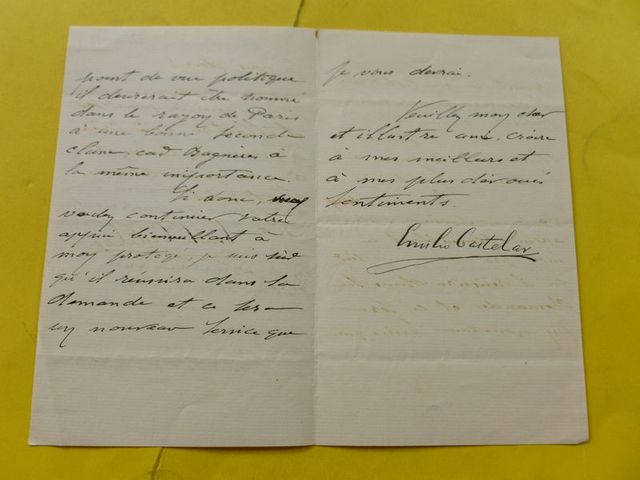 point de vue politique
il desirerait être nommé
dans le rayon de Paris
à une bonne seconde
classe, cad Bagnères à
la même importance.
Si donc, vous
voulez continuer votre
appui bienveillant à
moy protégé, je suis sûr
qu'il réussira dans sa
demande et ce sera
un nouveau service que
je vous devrai.
Veuillez moy cher
et illustre ami, croire
à mes meilleurs et
à mes plus dévoués
sentiments.
Emilio Castelar